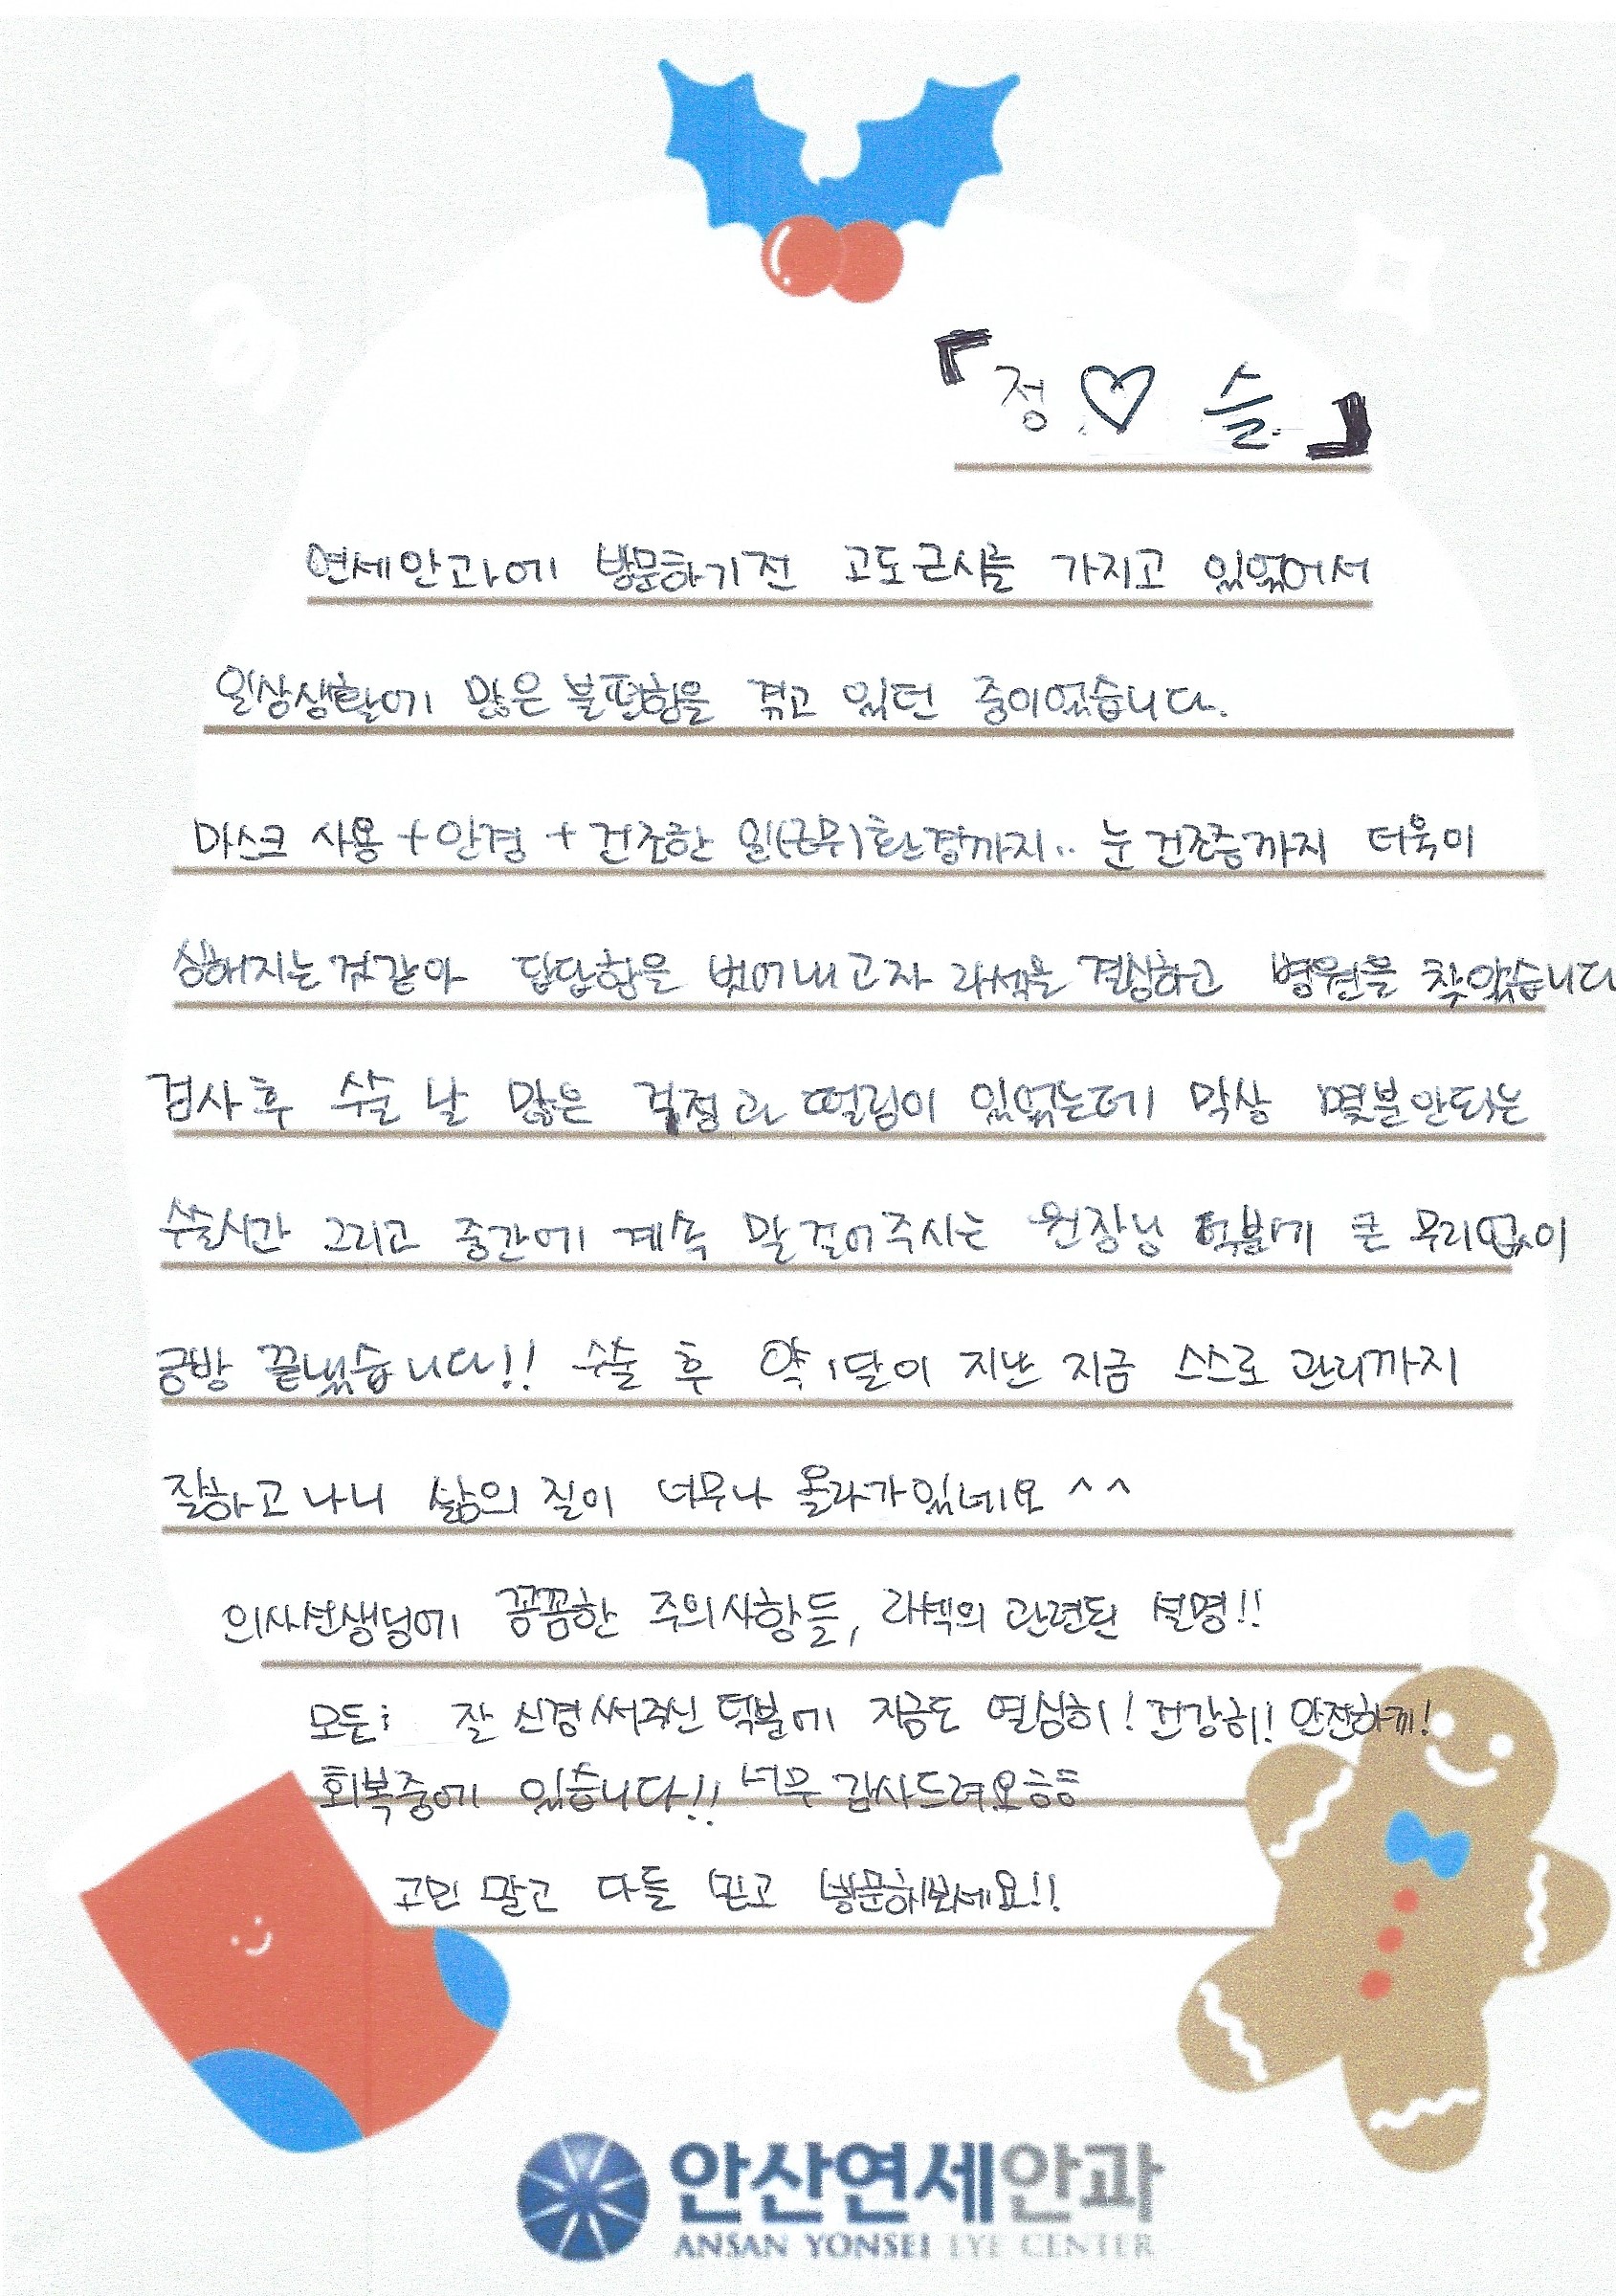 『정♡슬』
연세안과에 방문하기전 고도근시를 가지고 있었어서
일상생활에 많은 불편함을 겪고 있던 중이었습니다.
마스크 사용 + 안경 + 건조한 일(근무)환경까지.. 눈 건조증까지 더욱이
심해지는 것같아 답답함을 벗어내고자 라섹을 결심하고 병원을 찾았습니다
검사 후 수술 날 많은 걱정과 떨림이 있었는데 막상 몇분안되는
수술시간 그리고 중간에 계속 말 걸어주시는 원장님 덕분에 큰 무리없이
금방 끝냈습니다!! 수술 후 약 1달이 지난 지금 스스로 관리까지
잘하고 나니 삶의 질이 너무나 올라가있네요 ^^
의사선생님에 꼼꼼한 주의사항들, 라섹의 관련된 설명!!
모든i 잘 신경써주신 덕분에 지금도 열심히! 건강히! 안전하게!
회복중에 있습니다!! 너무 감사드려요ㅎㅎ
고민 말고 다들 믿고 방문해보세요!!
안산연세안과
ANSAN YONSEI EYE CENTER